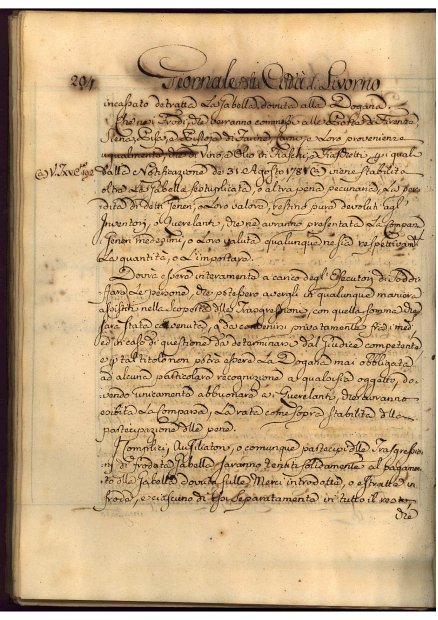 294 Giornale della Città di Livorno
incassato detratta La Gabella dovuta alla Dogana.
Che nei Frodi, che verranno commessi alle Porte di Firenze
Siena, Pisa, e Pistoja di Farine, Carni, e Loro provenienze
ugualmente, che di Vino, e Olio in Fiaschi, e Fiaschetti, p i quali
V. XXV 192 dalla Notificazione de 31. Agosto 1781 viene stabilita
oltre La Gabella settuplicata, o altra pena pecuniaria, La per
dita di detti Generi, o Loro valore, restino pure devoluti agl'
Inventori, o Querelanti, che ne avranno presentata La Comparsa
Generi medesimi, o Loro valuta qualunque ne sia respettivam.
La quantità, o L'importare.
Dovrà essere interamente a carico degl'Esecutori di Soddi
sfare Le persone, che potessero avergli in qualunque maniera
assistiti nella scoperta delle Trasgressioni, con quella somma che
sarà stata convenuta, o da convenirsi privatamente fra i med.
ed in caso di questione da determinarsi dal Giudice competente
e p tal titolo non potrà essere La Dogana mai obbligata
ad alcuna particolare recognizione a qualsisia oggetto, do
vendo unicamente abbuonare ai Querelanti, che avranno
esibita La Comparsa, La rata come sopra stabilita della
partecipazione delle pene.
Complici, Ausiliatori, o comunque partecipi delle Trasgressio
ni di frodata Gabella saranno tenuti solidamente al pagamen
to della Gabella dovuta sulle Merci introdotte, o estratte in
frode, e ciascuno di essi separatamente in tutto il resto
che